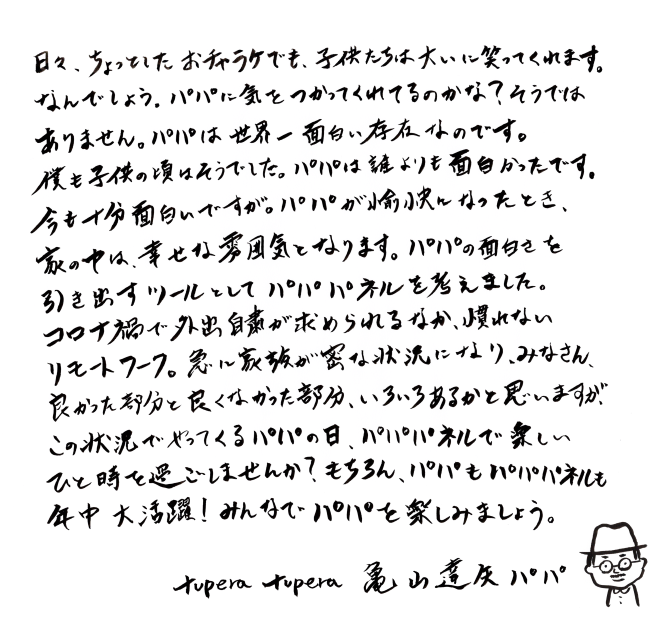 日々、ちょっとしたおチャラケでも、子供たちは大いに笑ってくれます。
なんでしょう。パパに気をつかってくれてるのかな？そうでは
ありません。パパは世界一面白い存在なのです。
僕も子供の頃はそうでした。パパは誰よりも面白かったです。
今も十分面白いですが。パパが愉快になったとき、
家の中は、幸せな雰囲気となります。パパの面白さを
引き出すツールとしてパパパネルを考えました。
コロナ禍で外出自粛が求められるなか、慣れない
リモートワーク。急に家族が密な状況になり、みなさん、
良かった部分と良くなかった部分、いろいろあるかと思いますが
この状況でやってくるパパの日、パパパネルで楽しい
ひと時を過ごしませんか？もちろん、パパもパパパネルも
年中大活躍！みんなでパパを楽しみましょう。
tupera tupera 亀山達矢パパ